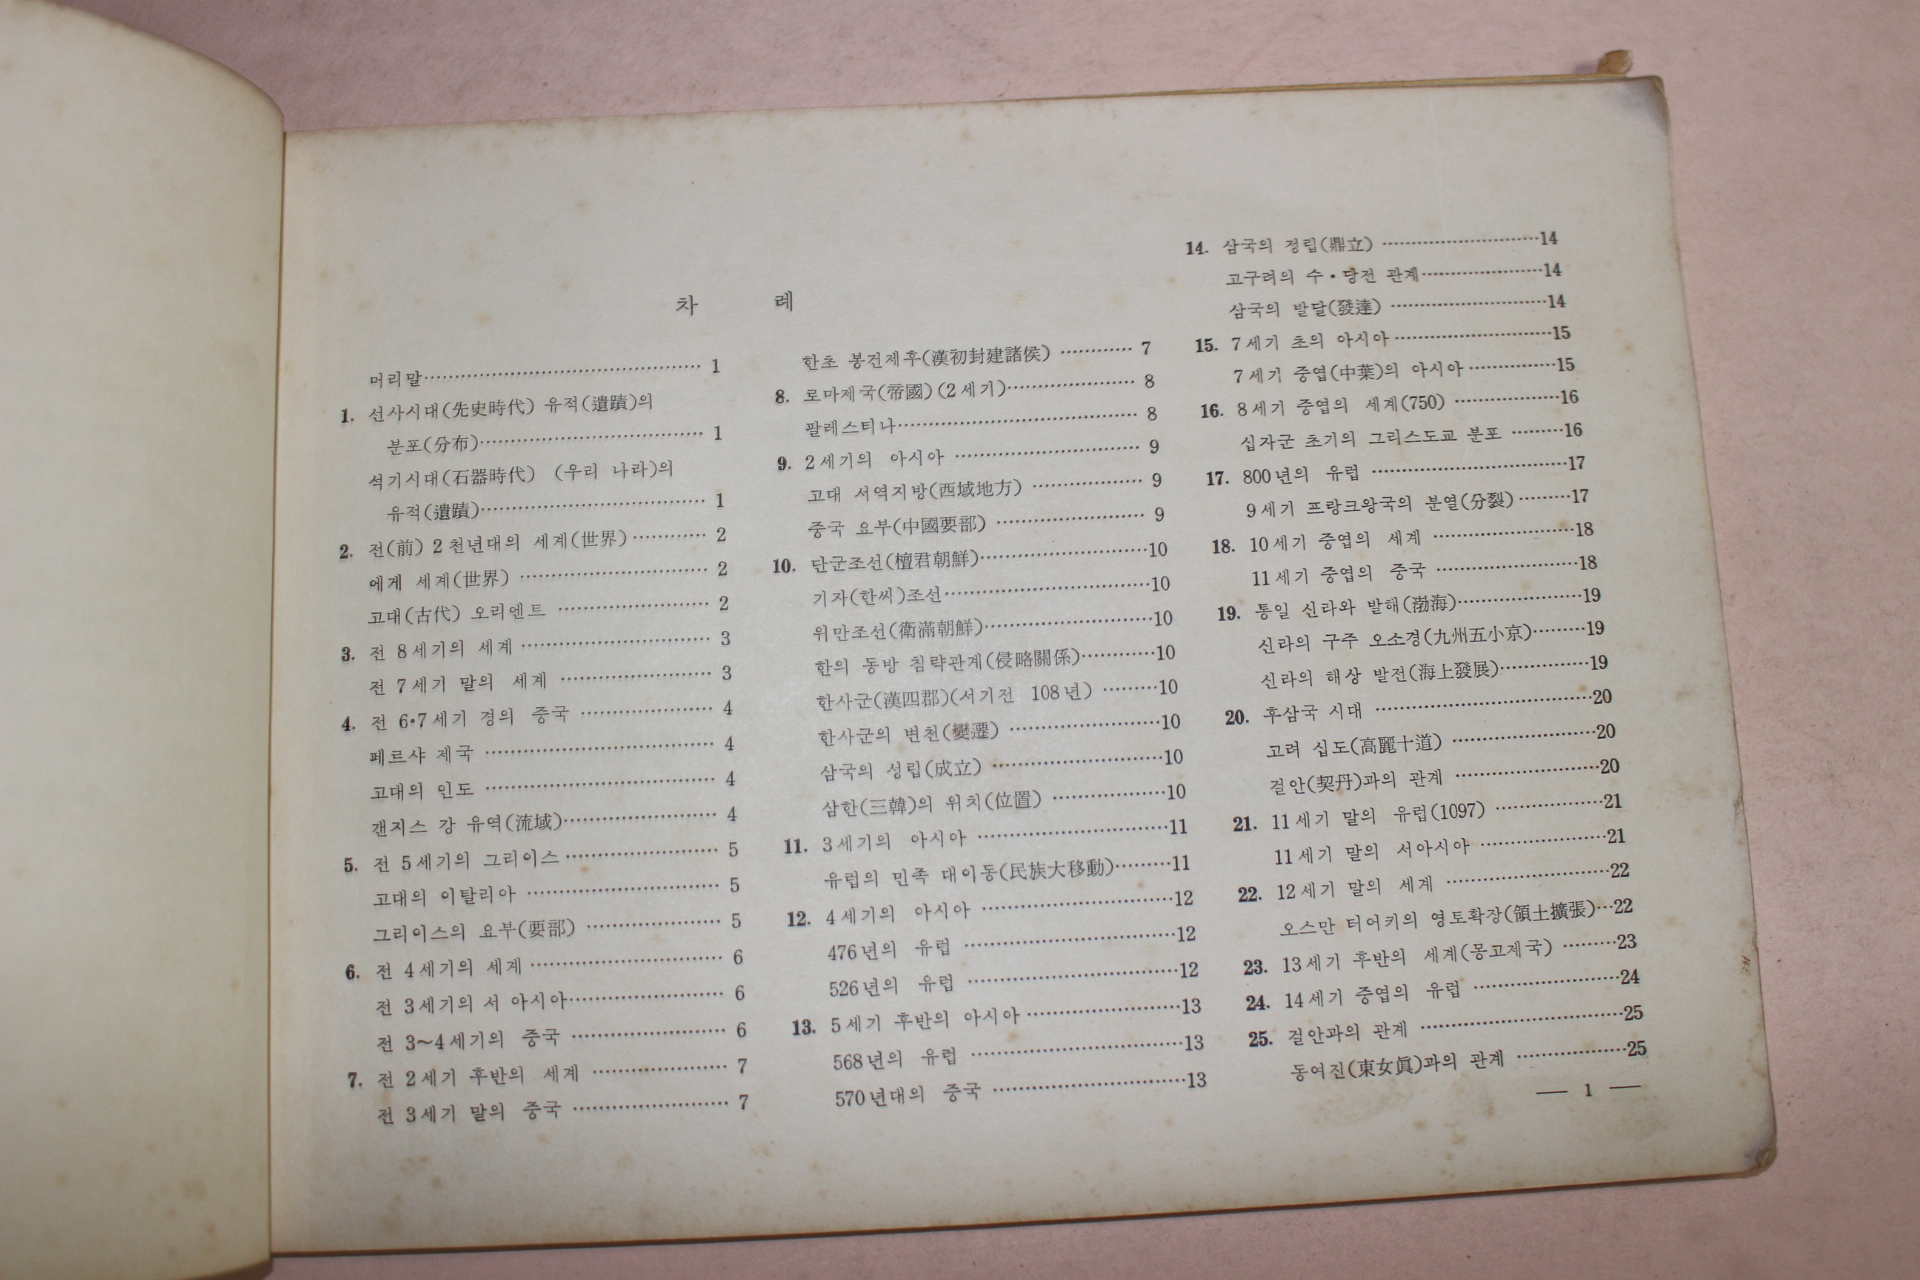 차 례
머리말 1
1. 선사시대(先史時代) 유적(遺蹟)의
분포(分布) 1
석기시대(石器時代) (우리 나라)의
유적(遺蹟) 1
2. 전(前) 2천년대의 세계(世界) 2
에게 세계(世界) 2
고대(古代) 오리엔트 2
3. 전 8세기의 세계 3
전 7세기 말의 세계 3
4. 전 6·7세기 경의 중국 4
페르샤 제국 4
고대의 인도 4
갠지스 강 유역(流域) 4
5. 전 5세기의 그리이스 5
고대의 이탈리아 5
그리이스의 요부(要部) 5
6. 전 4세기의 세계 6
전 3세기의 서 아시아 6
전 3~4세기의 중국 6
7. 전 2세기 후반의 세계 7
전 3세기 말의 중국 7
한초 봉건제후(漢初封建諸侯) 7
8. 로마제국(帝國)(2세기) 8
팔레스티나 8
9. 2세기의 아시아 9
고대 서역지방(西域地方) 9
중국 요부(中國要部) 9
10. 단군조선(檀君朝鮮) 10
기자(한씨)조선 10
위만조선(衛滿朝鮮) 10
한의 동방 침략관계(侵略關係) 10
한사군(漢四郡)(서기전 108년) 10
한사군의 변천(變遷) 10
삼국의 성립(成立) 10
삼한(三韓)의 위치(位置) 10
11. 3세기의 아시아 11
유럽의 민족 대이동(民族大移動) 11
12. 4세기의 아시아 12
476년의 유럽 12
526년의 유럽 12
13. 5세기 후반의 아시아 13
568년의 유럽 13
570년대의 중국 13
14. 삼국의 정립(鼎立) 14
고구려의 수·당전 관계 14
삼국의 발달(發達) 14
15. 7세기 초의 아시아 15
7세기 중엽(中葉)의 아시아 15
16. 8세기 중엽의 세계(750) 16
십자군 초기의 그리스도교 분포 16
17. 800년의 유럽 17
9세기 프랑크왕국의 분열(分裂) 17
18. 10세기 중엽의 세계 18
11세기 중엽의 중국 18
19. 통일 신라와 발해(渤海) 19
신라의 구주 오소경(九州五小京) 19
신라의 해상 발전(海上發展) 19
20. 후삼국 시대 20
고려 십도(高麗十道) 20
걸안(契丹)과의 관계 20
21. 11세기 말의 유럽(1097) 21
11세기 말의 서아시아 21
22. 12세기 말의 세계 22
오스만 터어키의 영토확장(領土擴張) 22
23. 13세기 후반의 세계(몽고제국) 23
24. 14세기 중엽의 유럽 24
25. 걸안과의 관계 25
동여진(東女眞)과의 관계 25
— 1 —